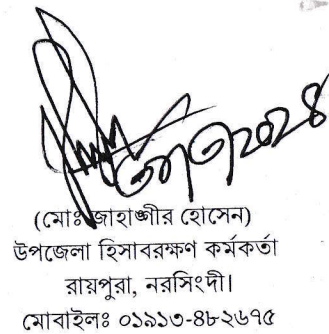 (মোঃ জাহাঙ্গীর হোসেন)
উপজেলা হিসাবরক্ষণ কর্মকর্তা
রায়পুরা, নরসিংদী।
মোবাইলঃ ০১৯১৩-৪৮২৬৭৫